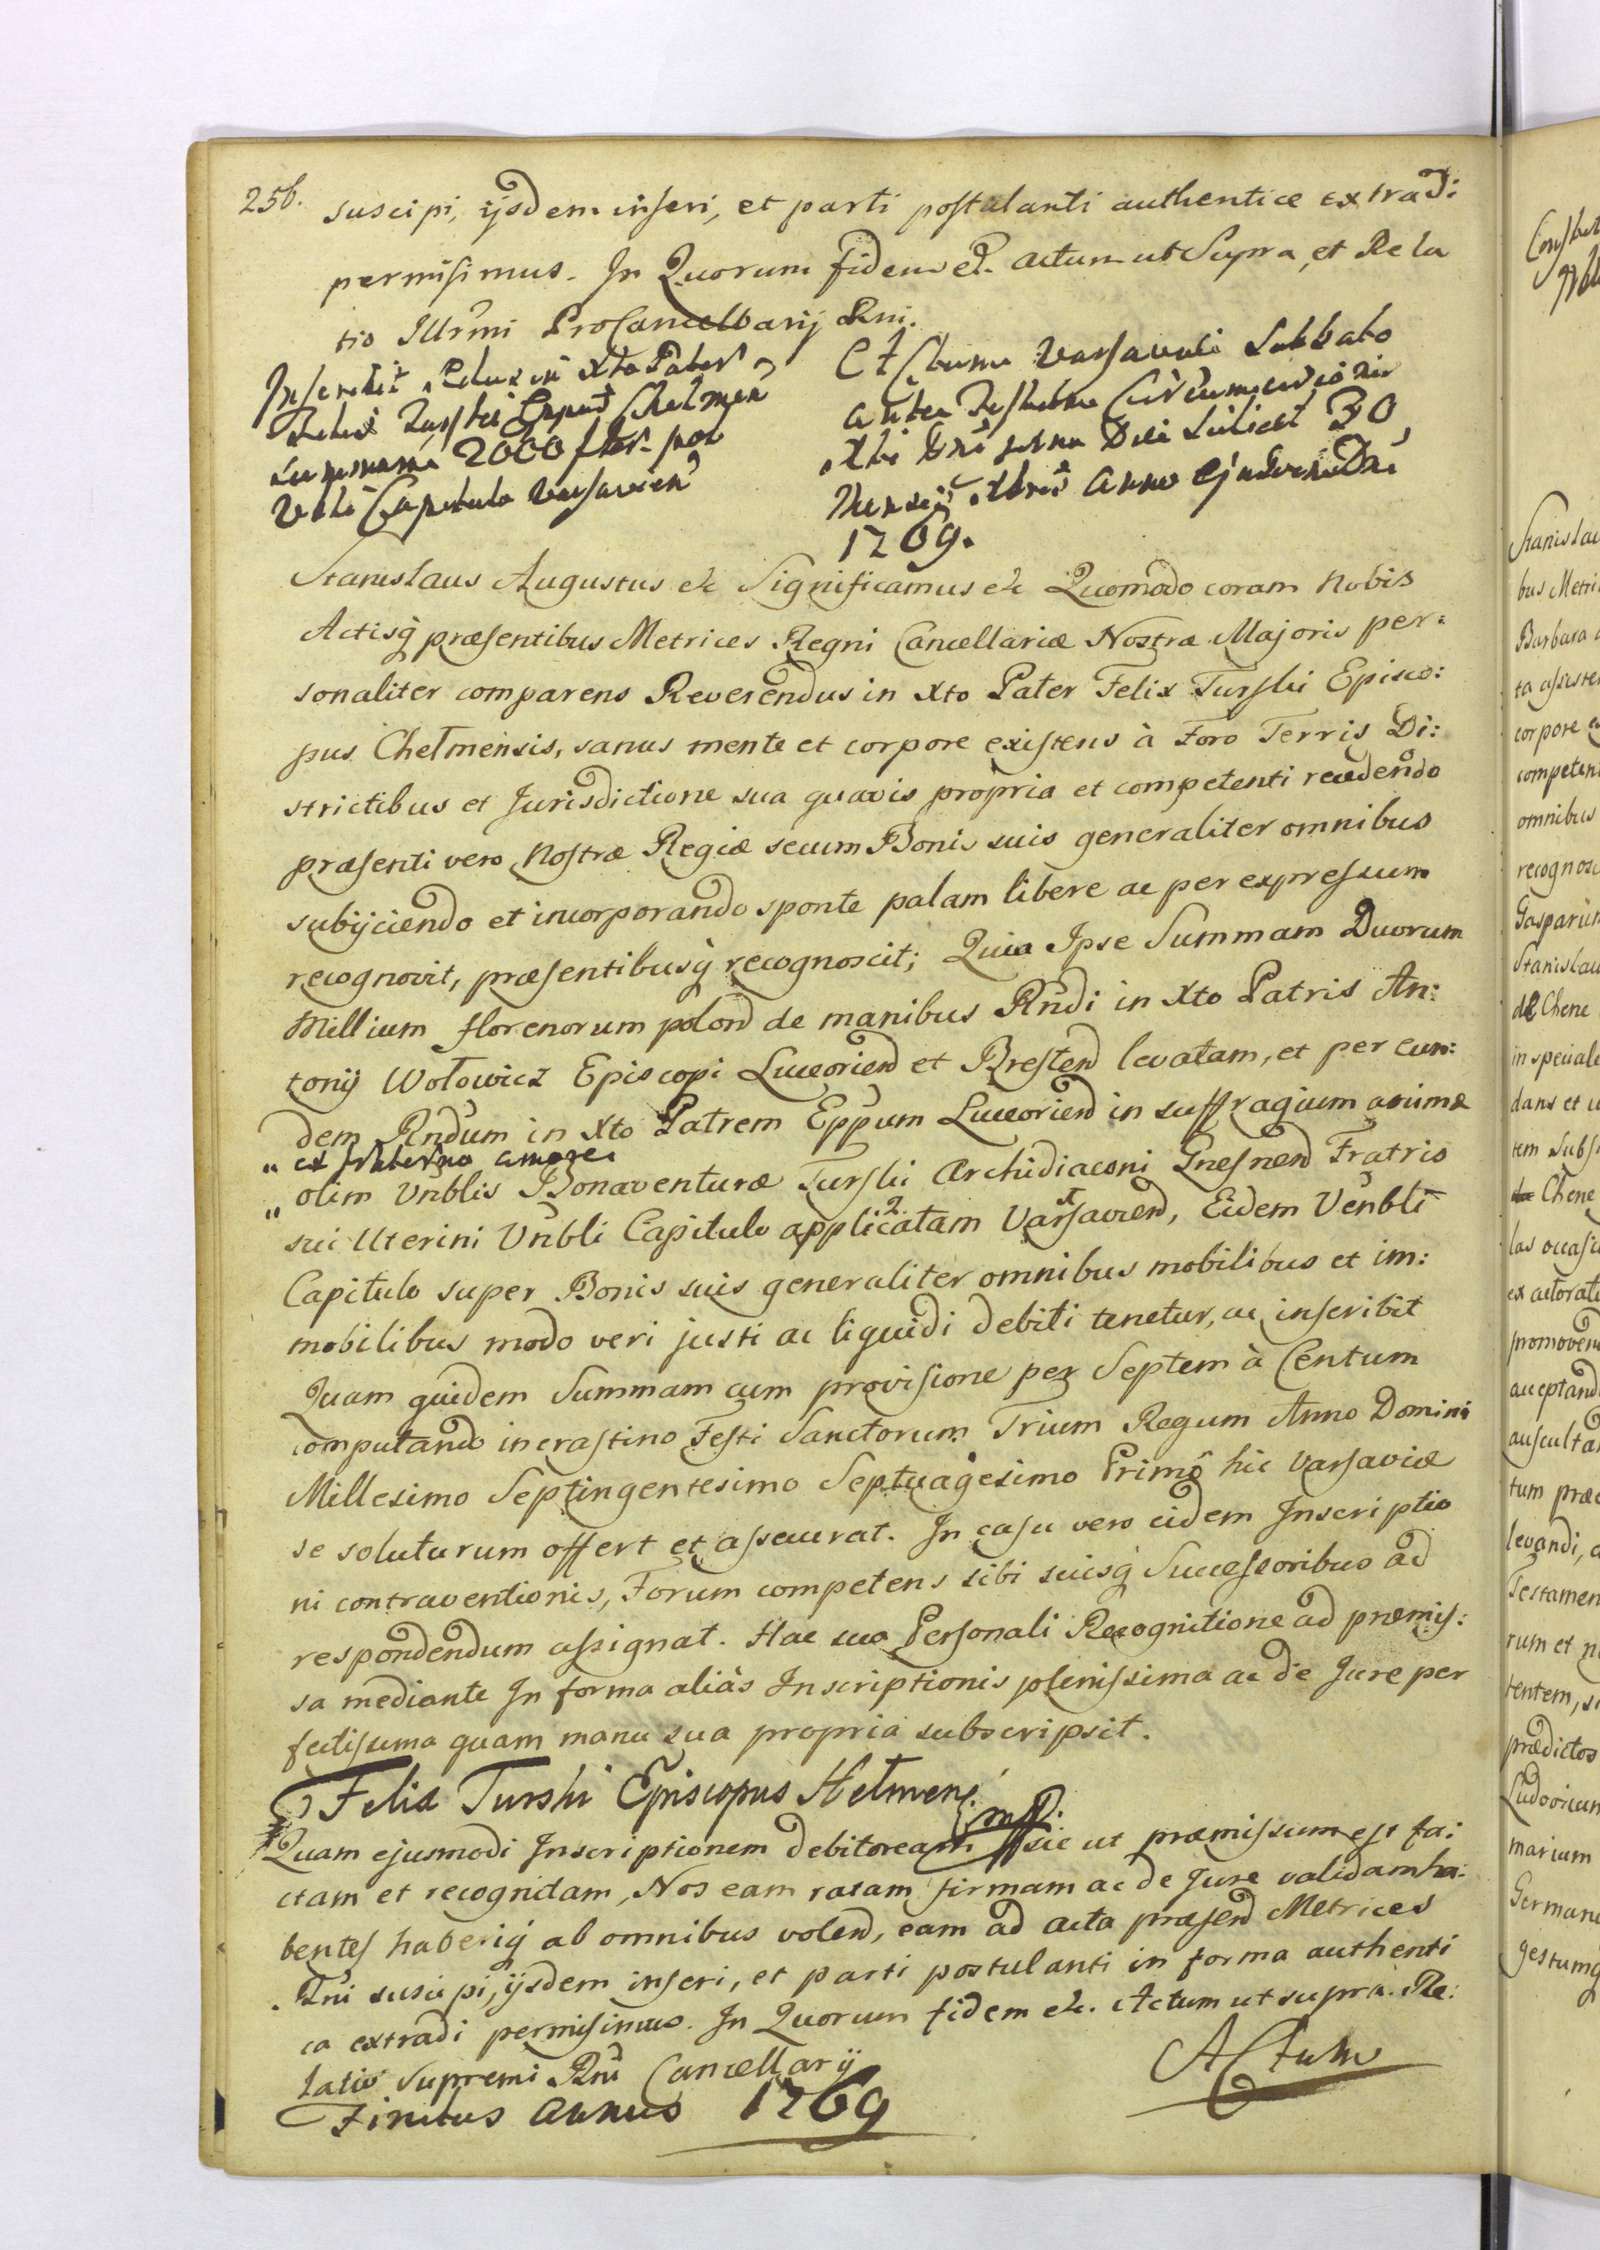 256.
suscipi, ijsdem inseri, et parti postulanti authentice extradi
permisimus. In Quorum fidem et. Actum ut Supra, et Rela
tio Illrmi ProCancellarij Rni.
Inscribit Rdus in Xto Pater
Felix Turski Eppus Chelmen
summam 2000 flor. pol
Vbli Capitulo Varsavien
Actum Varsaviæ Sabbato
ante Festum Circumcisionis
Xti Dni scilicet 30
Mensis Xbris Anno Ejusdem Dni
1769.
Stanislaus Augustus etc Significamus etc Quomodo coram Nobis
Actisq præsentibus Metrices Regni Cancellariæ Nostræ Majoris per:
sonaliter comparens Reverendus in Xto Pater Felix Turski Episco:
pus Chełmensis, sanus mente et corpore existens à Foro Terris Di:
strictibus et Jurisdictione sua quavis propria et competenti recedendo
præsenti vero Nostræ Regiæ secum Bonis suis generaliter omnibus
subijciendo et incorporando sponte palam libere ac per expressum
recognovit, præsentibusq recognoscit; Quia Ipse Summam Duorum
Millium florenorum polon de manibus Rndi in Xto Patris An:
tonij Wołowicz Episcopi Luceorien et Bresten levatam, et per eun:
dem Rndum in Xto Patrem Eppum Luceorien in suffragium animæ
" ex fraterno amore
" olim Vnblis Bonaventuræ Turski Archidiaconi Gnesnen Fratris
sui Uterini Vnbli Capitulo applicatam Varsavien, Eidem Venbli
Capitulo super Bonis suis generaliter omnibus mobilibus et im:
mobilibus modo veri justi ac liquidi debiti tenetur, ac inscribit
Quam quidem Summam cum provisione per Septem à Centum
computando in crastino Festi Sanctorum Trium Regum Anno Domini
Millesimo Septingentesimo Septuagesimo Primo hic Varsaviæ
se soluturum offert et assecurat. In casu vero eidem Inscriptio
ni contraventionis, Forum competens sibi suisq Successoribus ad
respondendum assignat. Hac sua Personali Recognitione ad præmis:
sa mediante In forma aliàs Inscriptionis plenissima ac de Jure per
fectissima quam manu sua propria subscripsit.
Felix Turski Episcopus Hełmens. mp.
Quam ejusmodi Inscriptionem debitoream sic ut præmissum est fa:
ctam et recognitam, Nos eam ratam firmam ac de Jure validam ha:
bentes haberiq ab omnibus volen, eam ad acta præsen Metrices
Rni suscipi, ijsdem inseri, et parti postulanti in forma authenti
ca extradi permisimus. In Quorum fidem etc. Actum ut supra. Re:
latio Supremi Rni Cancellarij
Finitus Annus 1769
Actum
Stanislau
bus Metri
Barbara
ta assiste
corpore
competen
omnibus
recognosc
Stanislau
de Chene
in special
dans et
tem Subs
Chene
las occasi
ex actorat
promoven
acceptand
ausculta
tum præ
levandi,
Testamen
rum et
tentem,
prædictos
Ludovicum
marium
German
gestumq